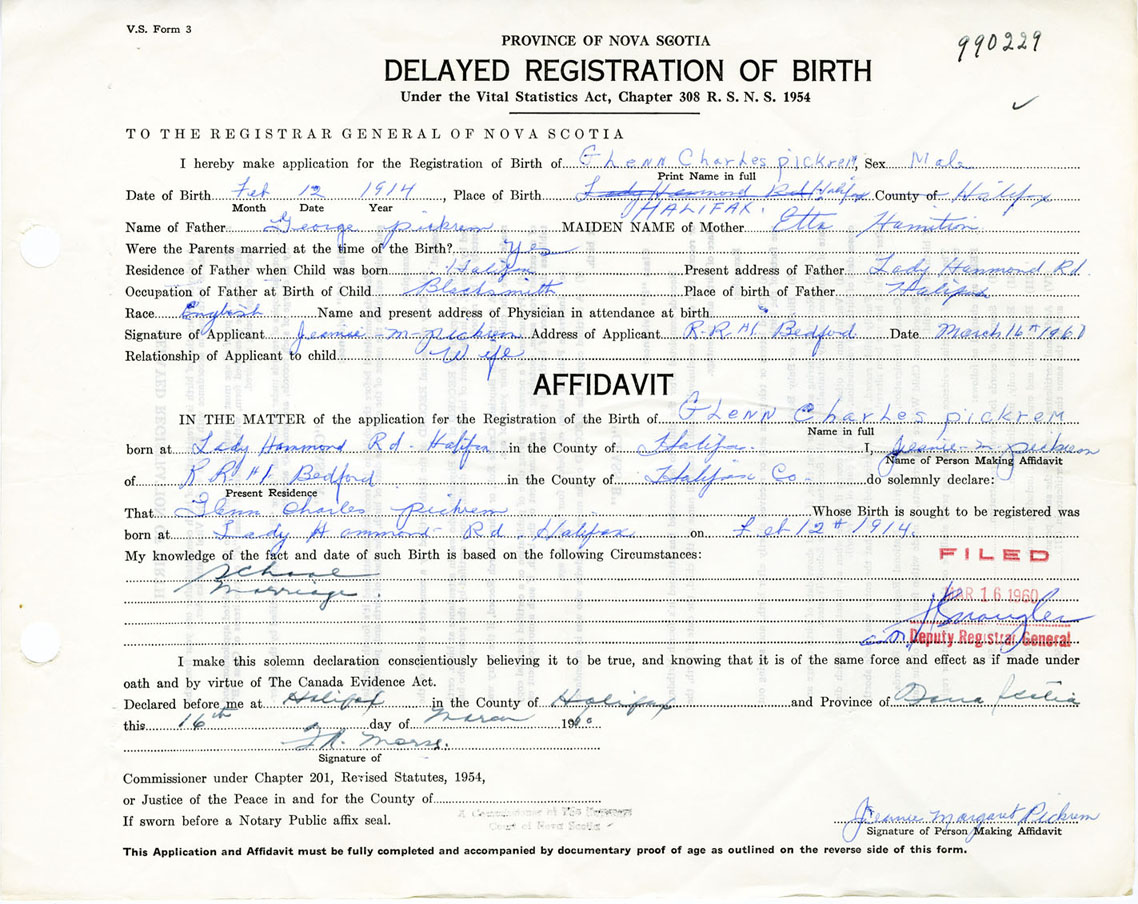 V.S. Form 3
990229
PROVINCE OF NOVA SCOTIA
DELAYED REGISTRATION OF BIRTH
Under the Vital Statistics Act, Chapter 308 R. S. N. S. 1954
TO THE REGISTRAR GENERAL OF NOVA SCOTIA
I hereby make application for the Registration of Birth of Glenn Charles pickrem, Sex Male
Print Name in full
Date of Birth Feb 12 1914, Place of Birth Lady Hammond Rd Halifax County of Halifax
Month Date Year HALIFAX.
Name of Father George pickrem MAIDEN NAME of Mother Etta Hamilton
Were the Parents married at the time of the Birth? Yes
Residence of Father when Child was born Halifax Present address of Father Lady Hammond Rd.
Occupation of Father at Birth of Child Blacksmith Place of birth of Father Halifax
Race English Name and present address of Physician in attendance at birth
Signature of Applicant Jeanie M pickrem Address of Applicant R.R #1 Bedford Date March 16th 1960
Relationship of Applicant to child Wife
AFFIDAVIT
IN THE MATTER of the application for the Registration of the Birth of Glenn Charles pickrem
Name in full
born at Lady Hammond Rd. Halifax in the County of Halifax. I, Jeanie M pickrem
Name of Person Making Affidavit
of R R #1 Bedford in the County of Halifax Co. do solemnly declare:
Present Residence
That Glenn Charles pickrem Whose Birth is sought to be registered was
born at Lady Hammond Rd. Halifax on Feb 12th 1914.
My knowledge of the fact and date of such Birth is based on the following Circumstances:
School
Marriage.
FILED
MAR 16 1960
Deputy Registrar General
I make this solemn declaration conscientiously believing it to be true, and knowing that it is of the same force and effect as if made under
oath and by virtue of The Canada Evidence Act.
Declared before me at Halifax in the County of Halifax and Province of Nova Scotia
this 16th day of March 1960
Morse.
Signature of
Commissioner under Chapter 201, Revised Statutes, 1954,
or Justice of the Peace in and for the County of
A Commissioner of The Supreme
Court of Nova Scotia
If sworn before a Notary Public affix seal.
Jeanie Margaret Pickrem
Signature of Person Making Affidavit
This Application and Affidavit must be fully completed and accompanied by documentary proof of age as outlined on the reverse side of this form.